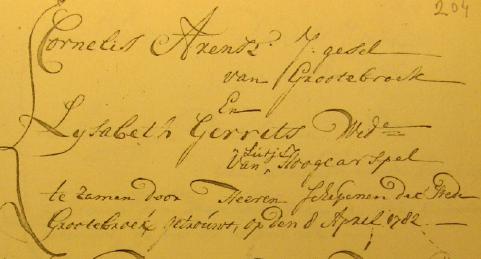 204
Cornelis Arentsz J: gesel
van Grootebroek
En
Lysabeth Gerrets Wede
Lutje
van Hoogcarspel
te zamen door Heeren Schepenen der Stede
Grootebroek getrouwt, op den 8 April 1782.